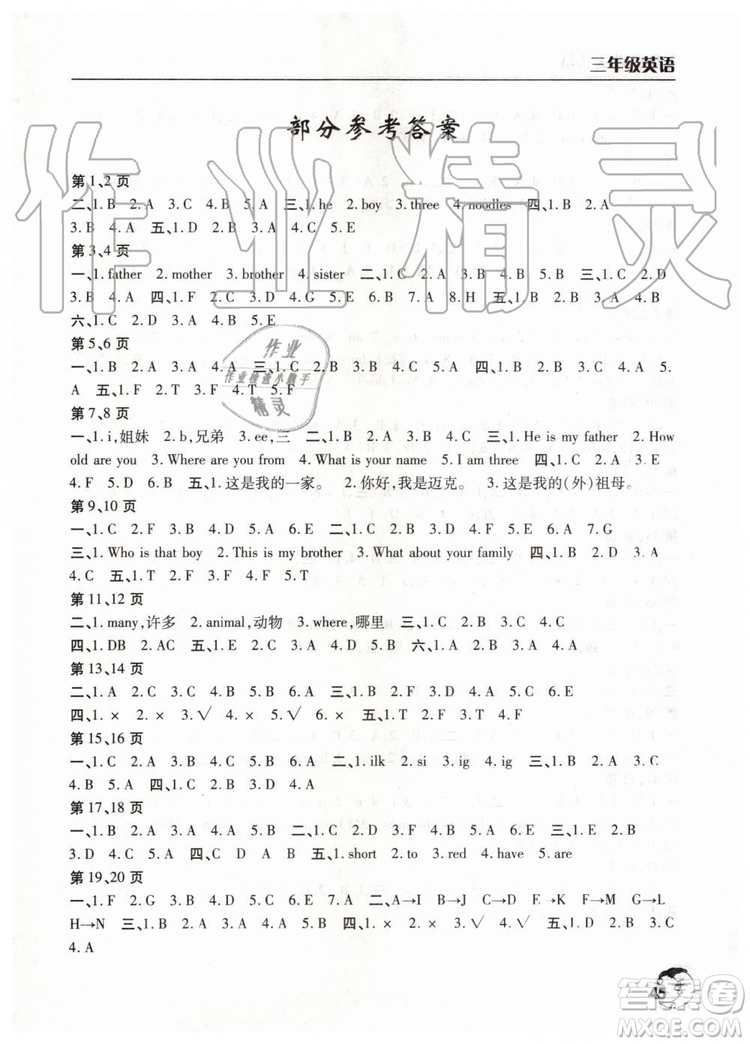 三年级英语
部分参考答案
第1、2页
二、1. B 2. A 3. C 4. A 三、1. he 2. boy 3. three 4. noodles 四、1. B 2. A
3. B 4. A 五、1. D 2. A 3. B 4. C 5. E
第3、4页
一、1. father 2. mother 3. brother 4. sister 二、1. C 2. D 3. A 4. B 三、1. B 2. A
3. B 4. A 四、1. F 2. C 3. D 4. B 5. G 6. E 7. A 8. H 五、1. B 2. A 3. B 4. B
六、1. C 2. D 3. A 4. B 5. E
第5、6页
一、1. B 2. B 3. C 二、1. B 2. A 3. A 三、1. C 2. B 3. C 4. B 5. A 四、1. C 2. B 3. C 4. A 5.
A 五、1. F 2. T 3. F 4. T 5. F
第7、8页
一、1. i,姐妹 2. b,兄弟 3. ee,三 二、1. B 2. A 3. C 三、1. He is my father 2. How
old are you 3. Where are you from 4. What is your name 5. I am three 四、1. C 2. B 3. E
4. F 5. D 五、1. 这是我的一家。 2. 你好,我是迈克。 3. 这是我的(外)祖母。
第9、10页
一、1. C 2. F 3. B 4. D 5. A 6. E 二、1. C 2. F 3. B 4. D 5. E 6. A 7. G
三、1. Who is that boy 2. This is my brother 3. What about your family 四、1. D 2. B 3. A
4. C 五、1. T 2. F 3. F 4. F 5. T
第11、12页
二、1. many,许多 2. animal,动物 3. where,哪里 三、1. C 2. B 3. A 4. C
四、1. DB 2. AC 五、1. C 2. B 3. A 4. B 5. B 六、1. A 2. B 3. C
第13、14页
二、1. B 2. A 3. C 4. B 5. B 6. A 三、1. F 2. C 3. D 4. B 5. A 6. E
四、1. × 2. × 3. √ 4. √ 5. × 五、1. T 2. F 3. T 4. F
第15、16页
一、1. F 2. B 3. A 4. C 5. D 6. E 二、1. ilk 2. si 3. ig 4. ig 三、1. B 2. C 3. C
4. B 5. A 四、1. B 2. C 3. D 4. A
第17、18页
一、1. B 2. A 3. A 4. C 5. C 6. B 二、1. C 2. B 3. C 4. A 三、1. E 2. C 3. A 4. B 5.
D 四、A B B C D A D 五、1. short 2. to 3. red 4. have 六、1. C 2. B 3. A
第19、20页
一、1. F 2. D 3. B 4. C 5. E 6. G 7. A
H→N 三、1. B 2. C 3. A 四、1. × 2. × 3. √ 4. √ 5. × 五、1. B 2. B 3. C
4. A
45
作业精灵
作业
作业检查小能手
精灵
答案卷